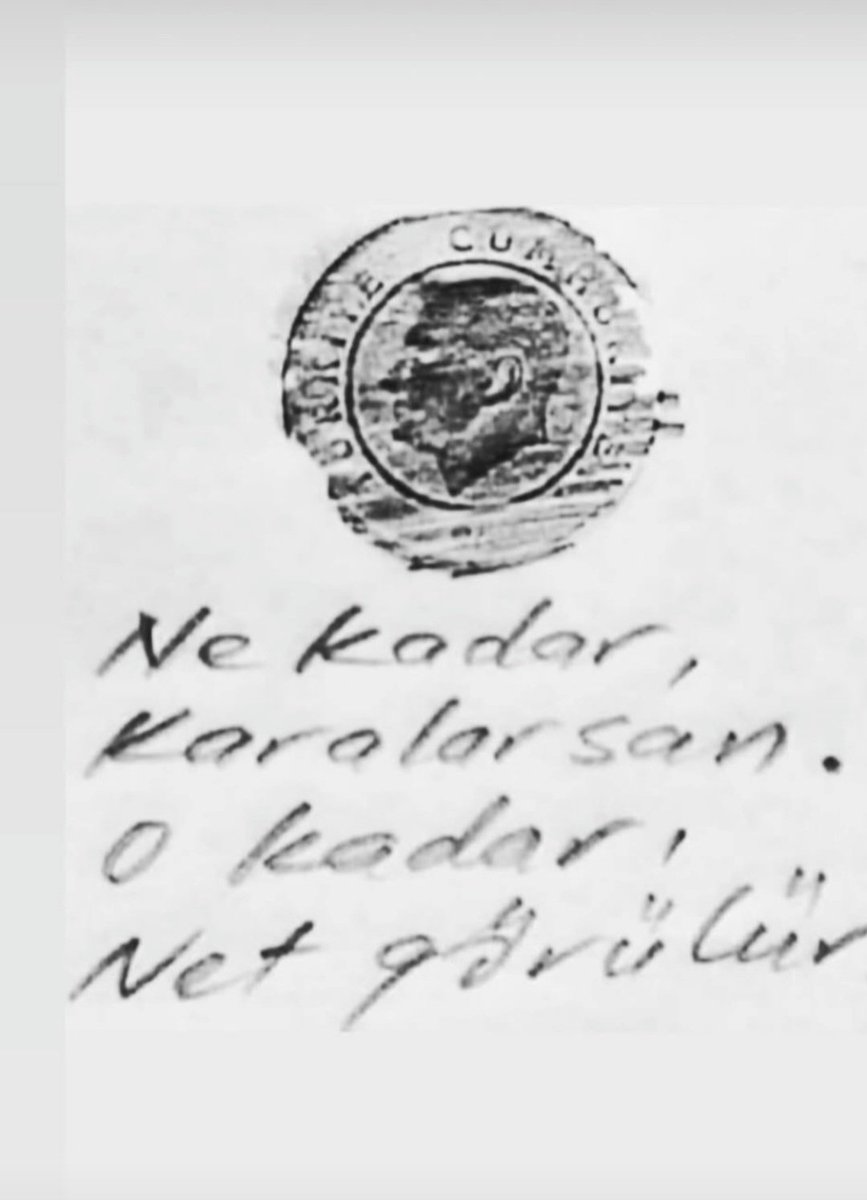 TÜRKİYE CUMHURİYETİ
Ne kadar,
Karalarsan.
O kadar,
Net görülür